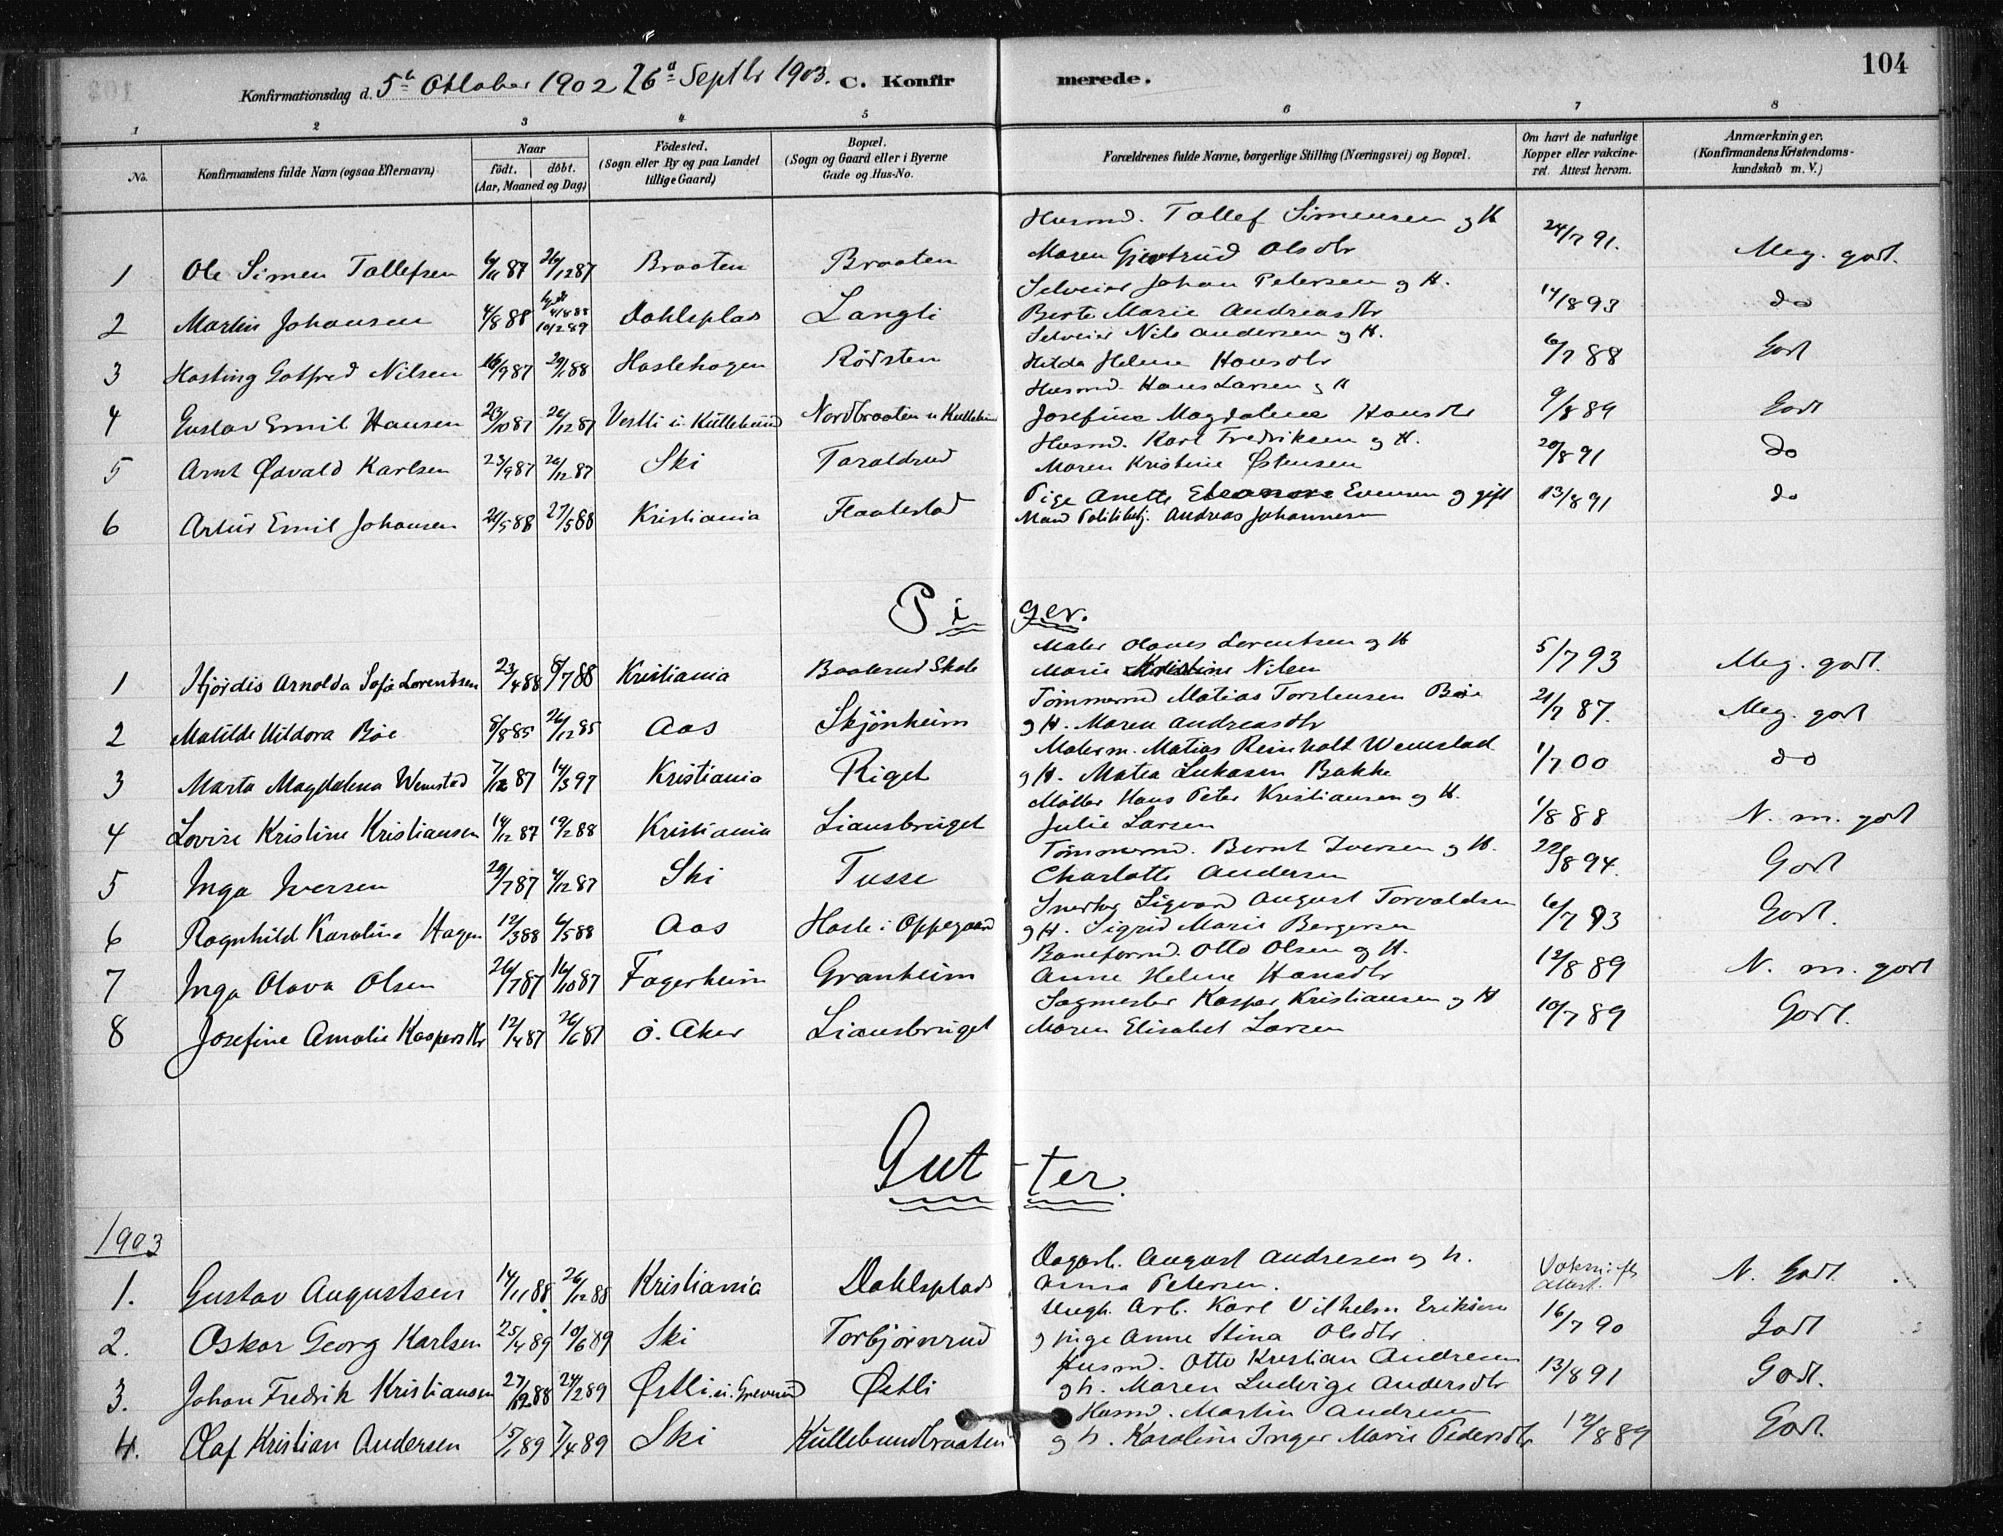 104
Konfirmationsdag d. 5te Oktober 1902 26d Septbr 1903. C. Konfirmerede.
1 2 3 4 5 6 7 8
No. Konfirmandens fulde Navn (ogsaa Efternavn) Naar født. døbt. (Aar, Maaned og Dag) Födested. (Sogn eller By og paa Landet tillige Gaard) Bopæl. (Sogn og Gaard eller i Byerne Gade og Hus-No. Forældrenes fulde Navne, borgerlige Stilling (Næringsvei) og Bopæl. Om havt de naturlige Kopper eller vakcineret. Attest herom. Anmærkninger. (Konfirmandens Kristendomskundskab m. V.)
Husmd. Tollef Simensen og H
1 Ole Simen Tollefsen 6/11 87 26/12 87 Braaten Braaten Maren Gjertrud Olsdtr 24/7 91. Meg. godt.
Selveier Johan Petersen og H.
2 Martin Johansen 4/8 88 10/2 89 Dahlsplads Langli Berte Marie Andreasdtr 14/8 93 do
Selveier Nils Andersen og H.
3 Hasting Gotfred Nilsen 16/9 87 29/1 88 Haslehagen Rødsten Hilda Helene Hansdtr 6/7 88 Godt
Husmd. Hans Larsen og H
4 Gustav Emil Hansen 23/10 87 26/12 87 Vestli u. Kullebund Nordbraaten u Kullebund Josefine Magdalena Hansdtr 9/8 89 Godt
Husmd. Karl Fredriksen og H.
5 Arnt Ødvald Karlsen 23/9 87 26/12 87 Ski Taraldrud Maren Kristine Østensen 20/8 91 do
Pige Anette Eleanore Evensen og gift
6 Artur Emil Johansen 21/5 88 27/5 88 Kristiania Flaatestad Mand Politibtj. Andreas Johannesen 13/8 91 do
Piger.
Maler Olaves Lorentsen og H
1 Hjørdis Arnolda Sofie Lorentsen 23/4 88 8/7 88 Kristiania Baalerud Skole Marie Kristine Nilsen 5/7 93 Meg. godt.
Tømmermd Matias Torstensen Bøe
2 Matilde Hildora Bøe 8/8 85 26/12 85 Aas Skjønheim og H. Maren Andreasdtr 21/7 87. Meg. godt
Malerm. Matias Reinholt Wemstad
3 Marta Magdalena Wemstad 7/12 87 14/3 97 Kristiania Riget og H. Matea Lukasen Bakke 1/7 00 do
Møller Hans Peter Kristiansen og H.
4 Lovise Kristine Kristiansen 14/12 87 19/2 88 Kristiania Liansbruget Julie Larsen 1/8 88 N. m. godt
Tømmermd. Bernt Iversen og H.
5 Inga Iversen 29/7 87 4/12 87 Ski Tusse Charlotte Andersen 22/8 94. Godt
Snedker Sigvard August Torvaldsen
6 Ragnhild Karoline Hagen 12/3 88 6/5 88 Aas Hasle i Oppegaard og H. Sigrid Marie Bergersen 6/7 93 Godt.
Baneformd. Otto Olsen og H.
7 Inga Olava Olsen 26/7 87 16/10 87 Fagerheim Granheim Anne Helene Hansdtr 12/8 89 N. m. godt
Sagmester Kasper Kristiansen og H
8 Josefine Amalie Kaspersdtr 12/4 87 26/6 87 Ö. Aker Liansbruget Maren Elisabet Larsen 10/7 89 Godt.
Gutter.
1903
Dagarb. August Andresen og h.
1. Gustav Augustsen 14/11 88 26/12 88 Kristiania Dahlsplads Anna Petersen. Vaksn. ift Attest. N. Godt.
Ungk. Arb. Karl Vilhelm Eriksen
2. Oskar Georg Karlsen 25/4 89 10/6 89 Ski Torbjørnrud og pige Anne Stina Olsdtr 16/7 90 Godt
Husmd. Otto Kristian Andresen
3. Johan Fredrik Kristiansen 27/12 88 24/2 89 Østli u. Greverud Østli og h. Maren Ludvige Andersdtr 13/8 91 Godt.
Husmd. Martin Andresen
4. Olaf Kristian Andersen 15/1 89 7/4 89 Ski Kullebundbraaten og h. Karoline Inger Marie Pedersdtr 12/8 89 Godt.